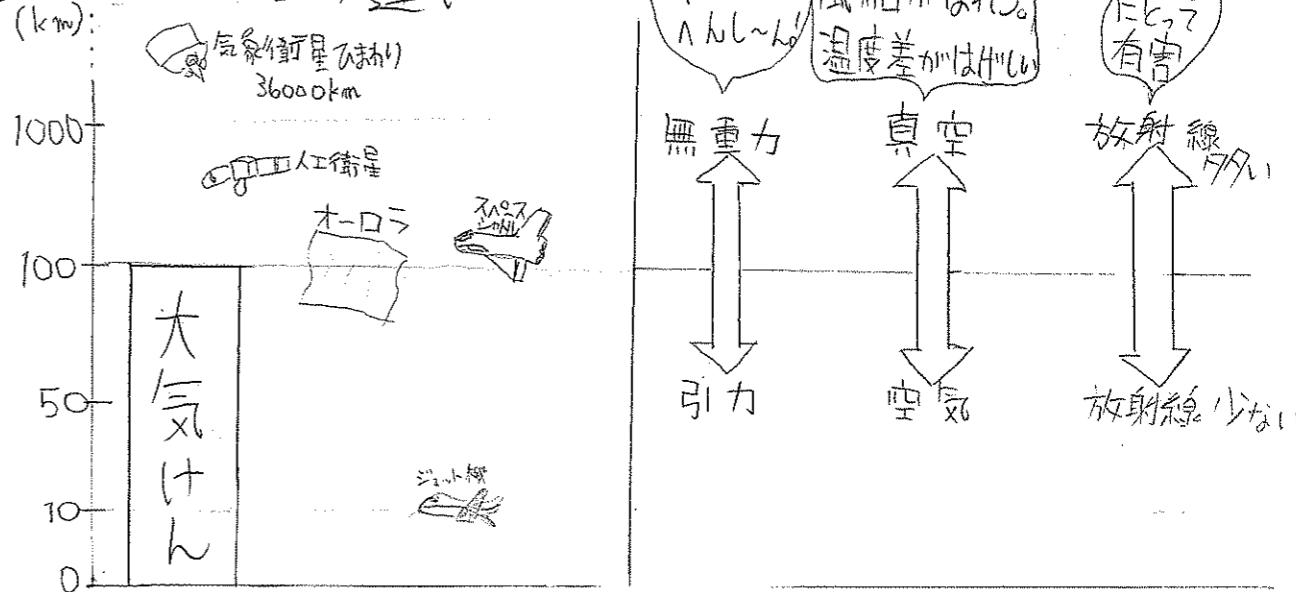 (km)
気象衛星ひまわり
36000km
1000
人工衛星
オーロラ
スペース
シャトル
100
大気けん
50
ジェット機
10
0
へんし〜ん!
温度差がはげしい
にとって
有害
無重力
真空
放射線
多い
引力
空気
放射線少ない